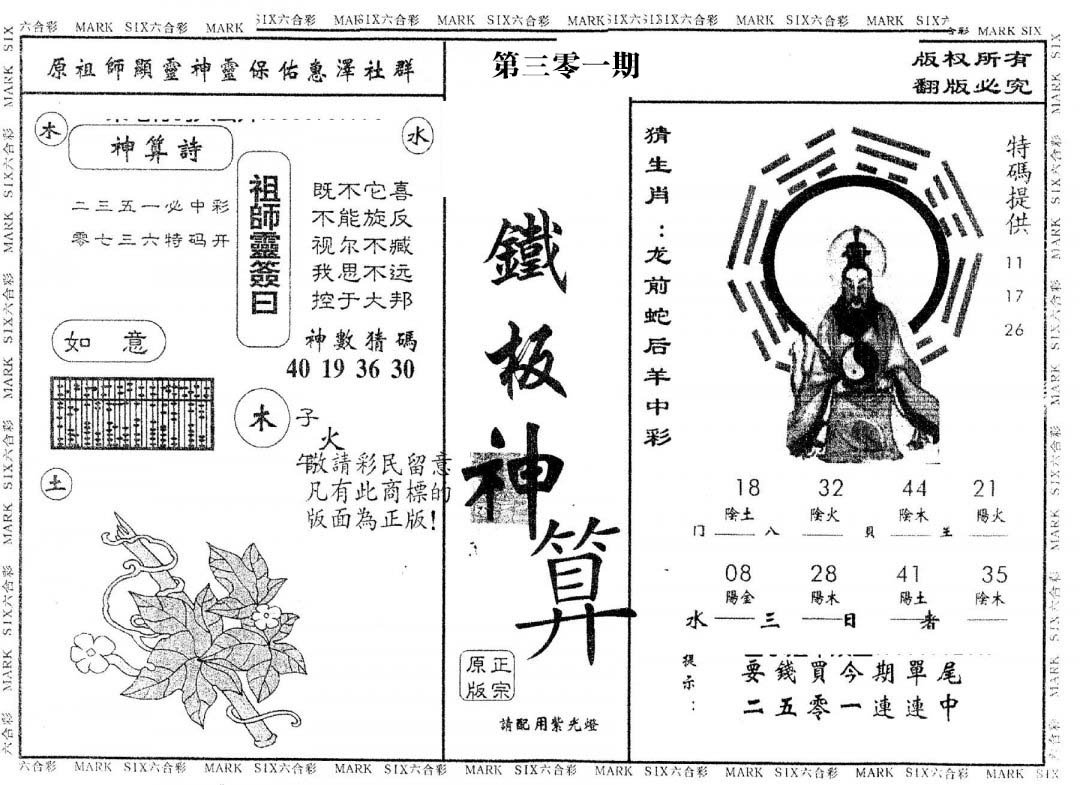 六合彩 MARK SIX六合彩 MARK SIX六合彩 MARK SIX六合彩 MARK SIX六合彩 MARK SIX六合彩 MARK SIX六合彩 MARK SIX
原祖師顯靈神靈保佑惠澤社群
第三零一期
版权所有
翻版必究
木
神算詩
水
二三五一必中彩
零七三六特码开
祖師靈簽曰
既不它喜
不能旋反
视尔不臧
我思不远
控于大邦
神數猜碼
40 19 36 30
如 意
木
子
火
午
敬請彩民留意
凡有此商標的
版面為正版!
土
鐵板神算
原正
版宗
請配用紫光燈
猜生肖:龙前蛇后羊中彩
特碼提供
11
17
26
18 32 44 21
陰土 陰火 陰木 陽火
门 八 貝 主
08 28 41 35
陽金 陽木 陽土 陰木
水 三 日 者
提示:
要錢買今期單尾
二五零一連連中
六合彩 MARK SIX六合彩 MARK SIX六合彩 MARK SIX六合彩 MARK SIX六合彩 MARK SIX六合彩 MARK SIX六合彩 MARK SIX六合彩 MARK SIX